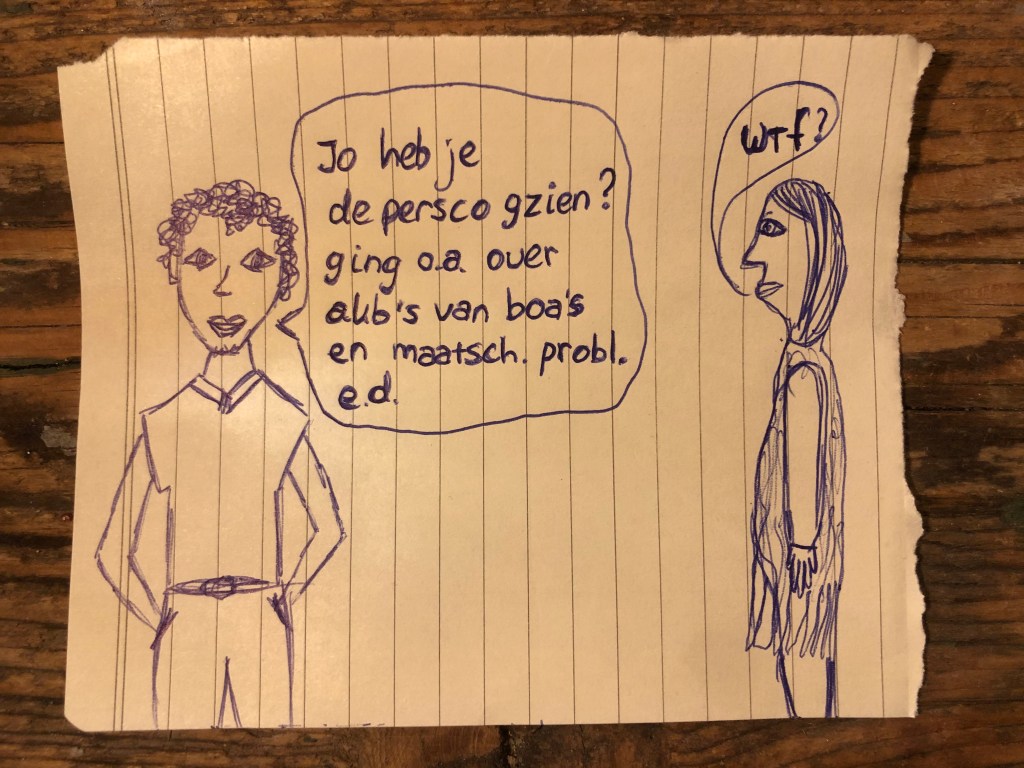 Jo heb je
de persco gzien?
ging o.a. over
akb's van boa's
en maatsch. probl.
e.d.
WTF?